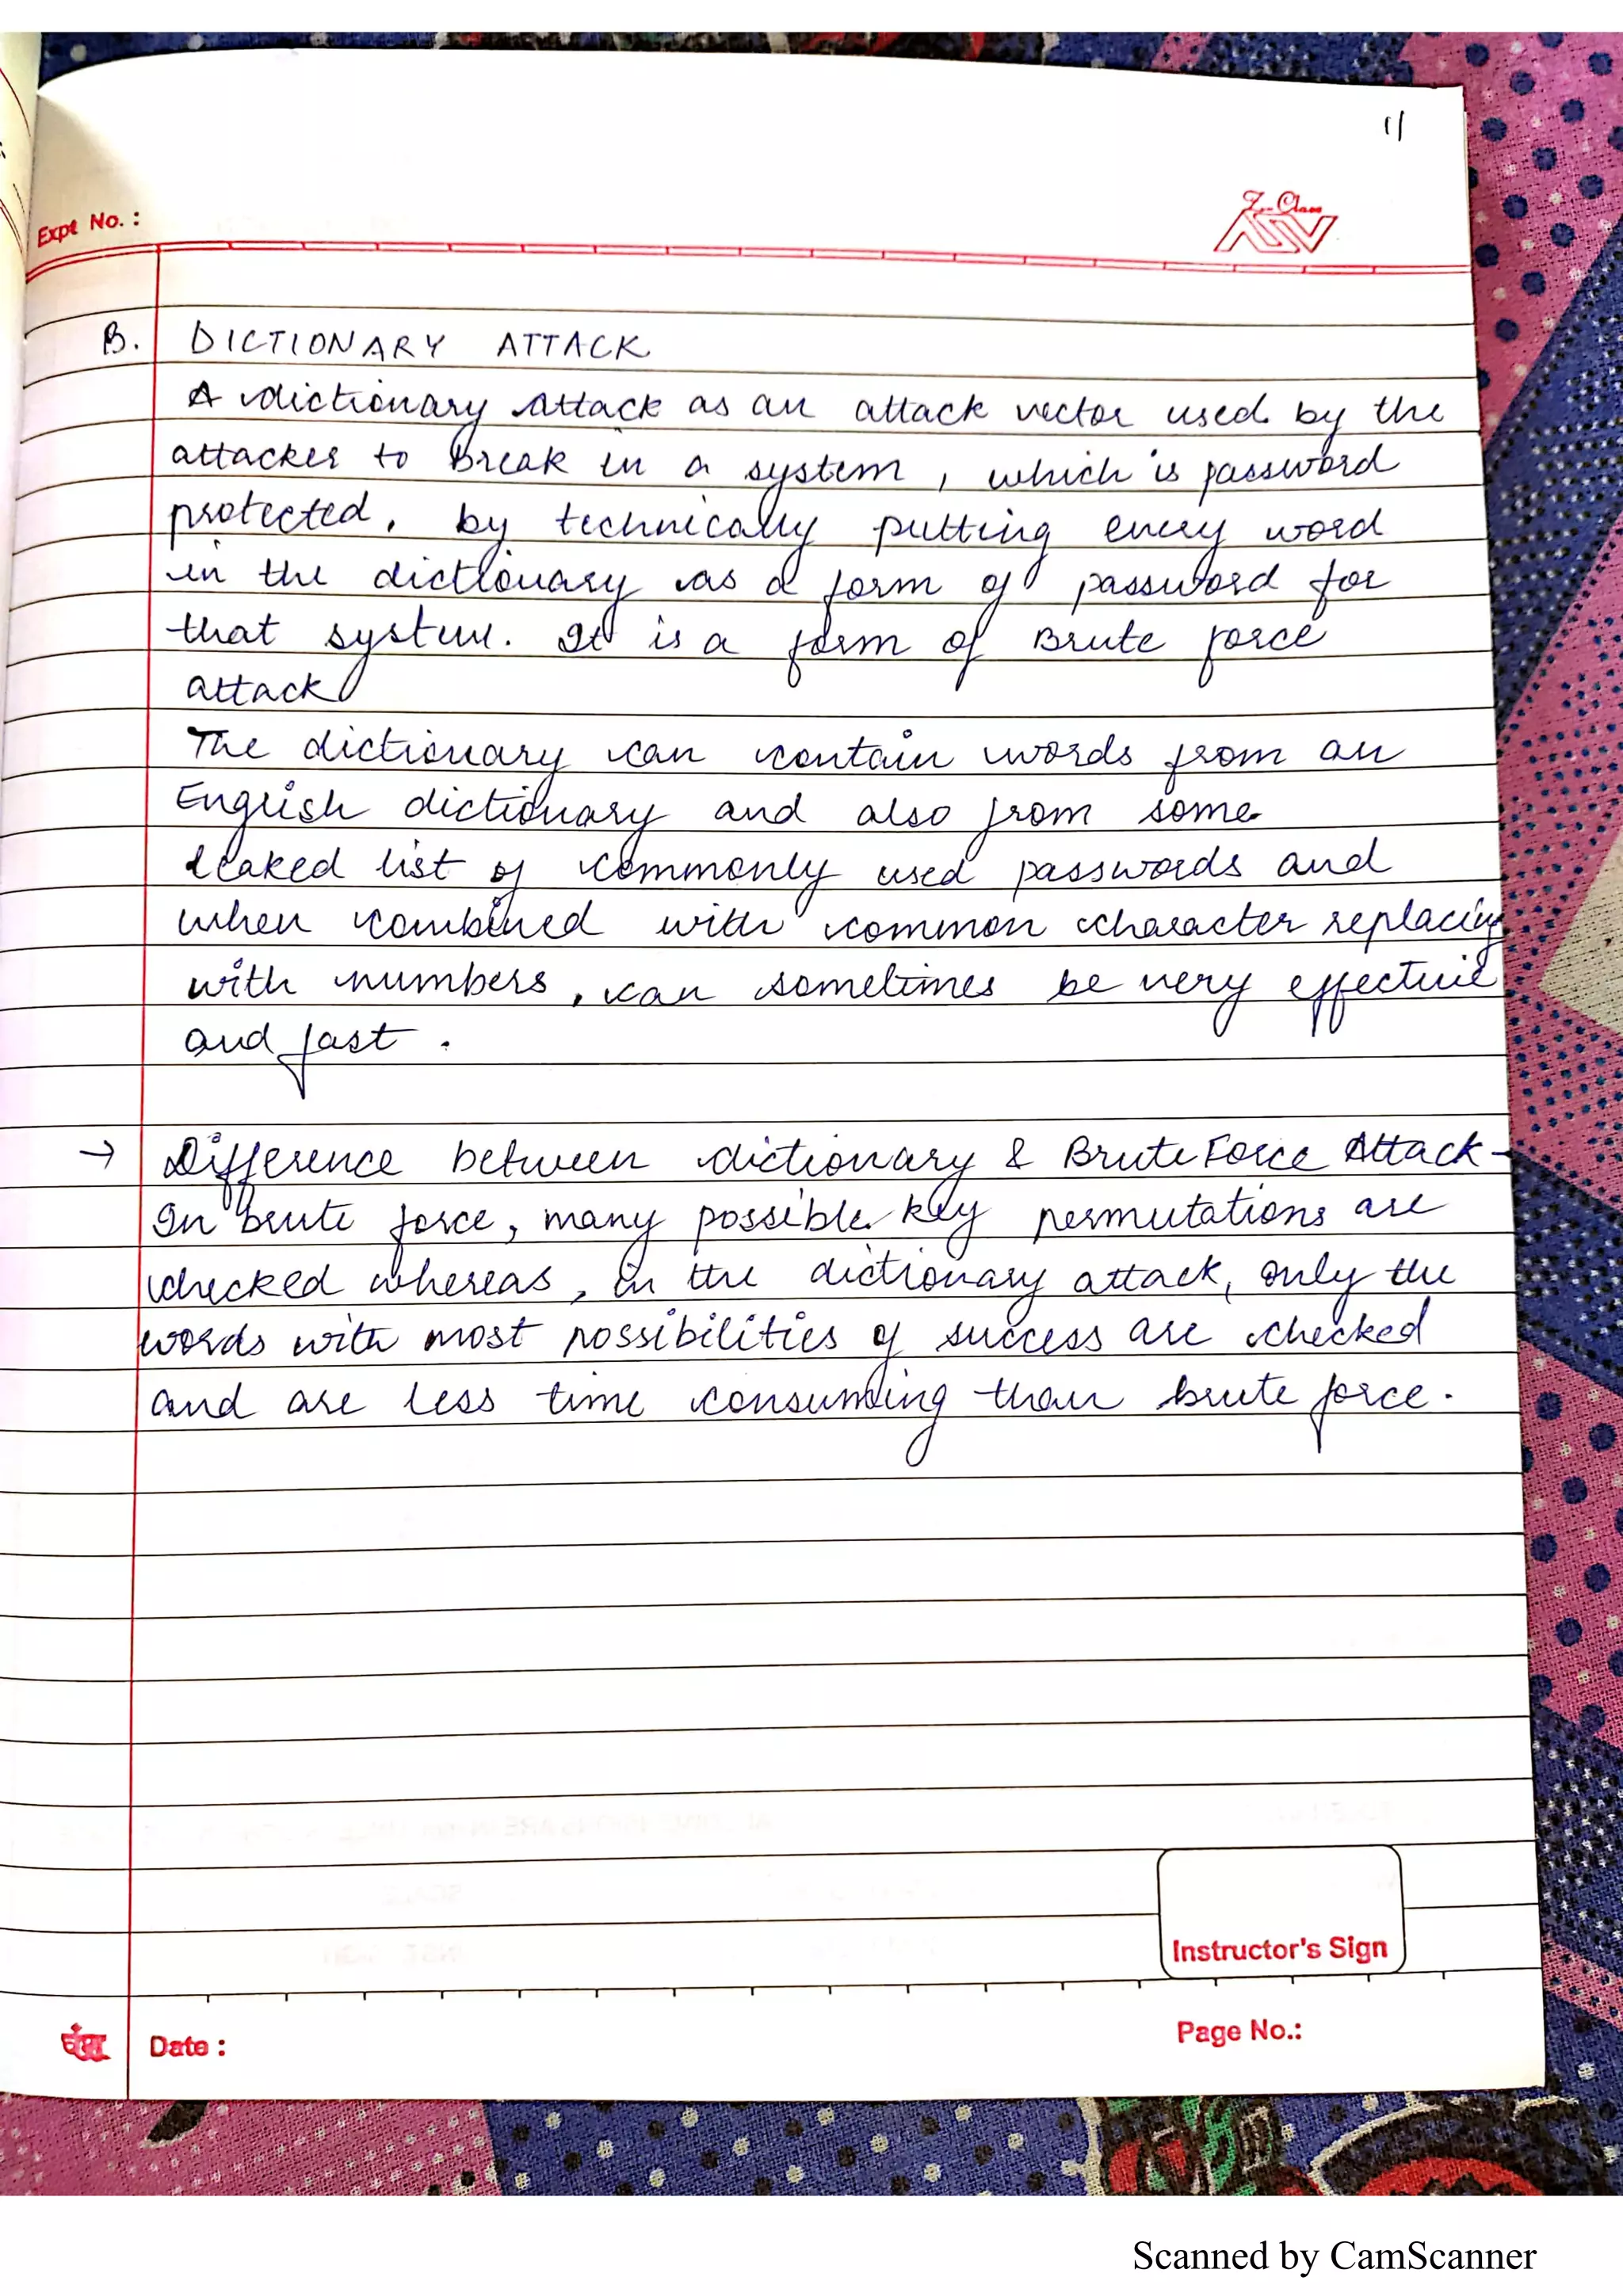 11
Expt No. :
Z-Class
B. DICTIONARY ATTACK
A dictionary attack as an attack vector used by the
attacker to break in a system, which is password
protected, by technically putting every word
in the dictionary as a form of password for
that system. It is a form of Brute force
attack
The dictionary can contain words from an
English dictionary and also from some
leaked list of commonly used passwords and
when combined with common character replacing
with numbers, can sometimes be very effective
and fast.
→ Difference between dictionary & Brute Force Attack-
In brute force, many possible key permutations are
checked whereas, in the dictionary attack, only the
words with most possibilities of success are checked
and are less time consuming than brute force.
Instructor's Sign
Date :
Page No.:
Scanned by CamScanner